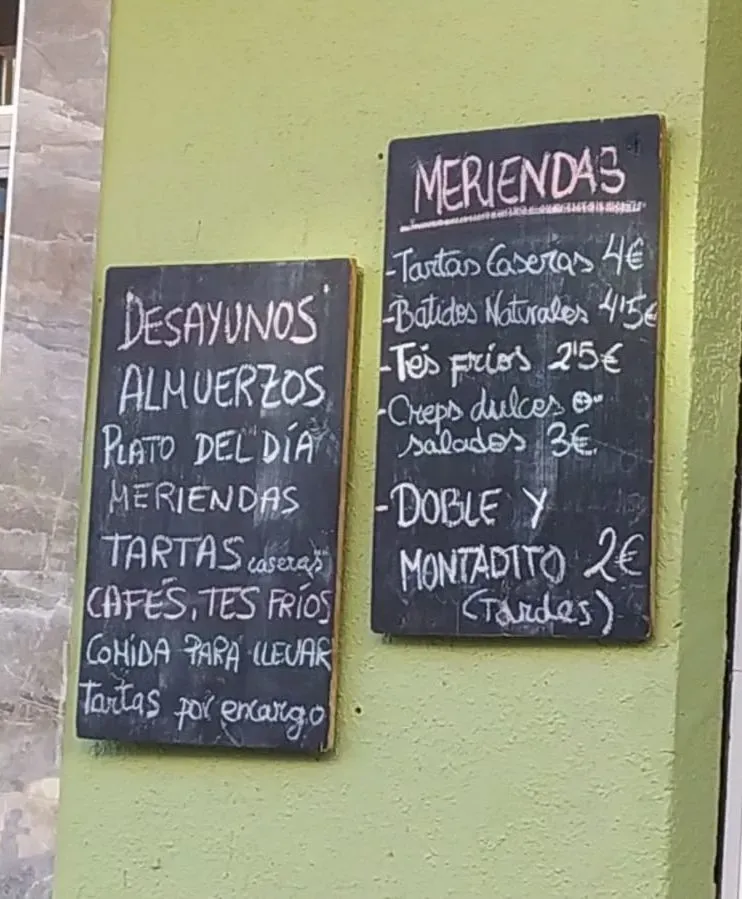 DESAYUNOS
ALMUERZOS
PLATO DEL DÍA
MERIENDAS
TARTAS caseras
CAFÉS, TES FRÍOS
COMIDA PARA LLEVAR
Tartas por encargo
MERIENDAS
-Tartas Caseras 4€
-Batidos Naturales 4'5€
-Tés fríos 2'5€
-Creps dulces o
salados 3€.
-DOBLE Y
MONTADITO 2€
(Tardes)